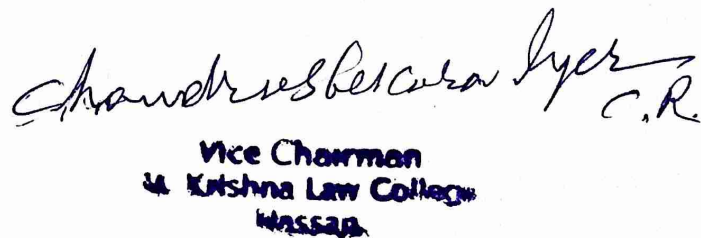 Chandrashekara Iyer
C.R.
Vice Chairman
Krishna Law College
Hassan